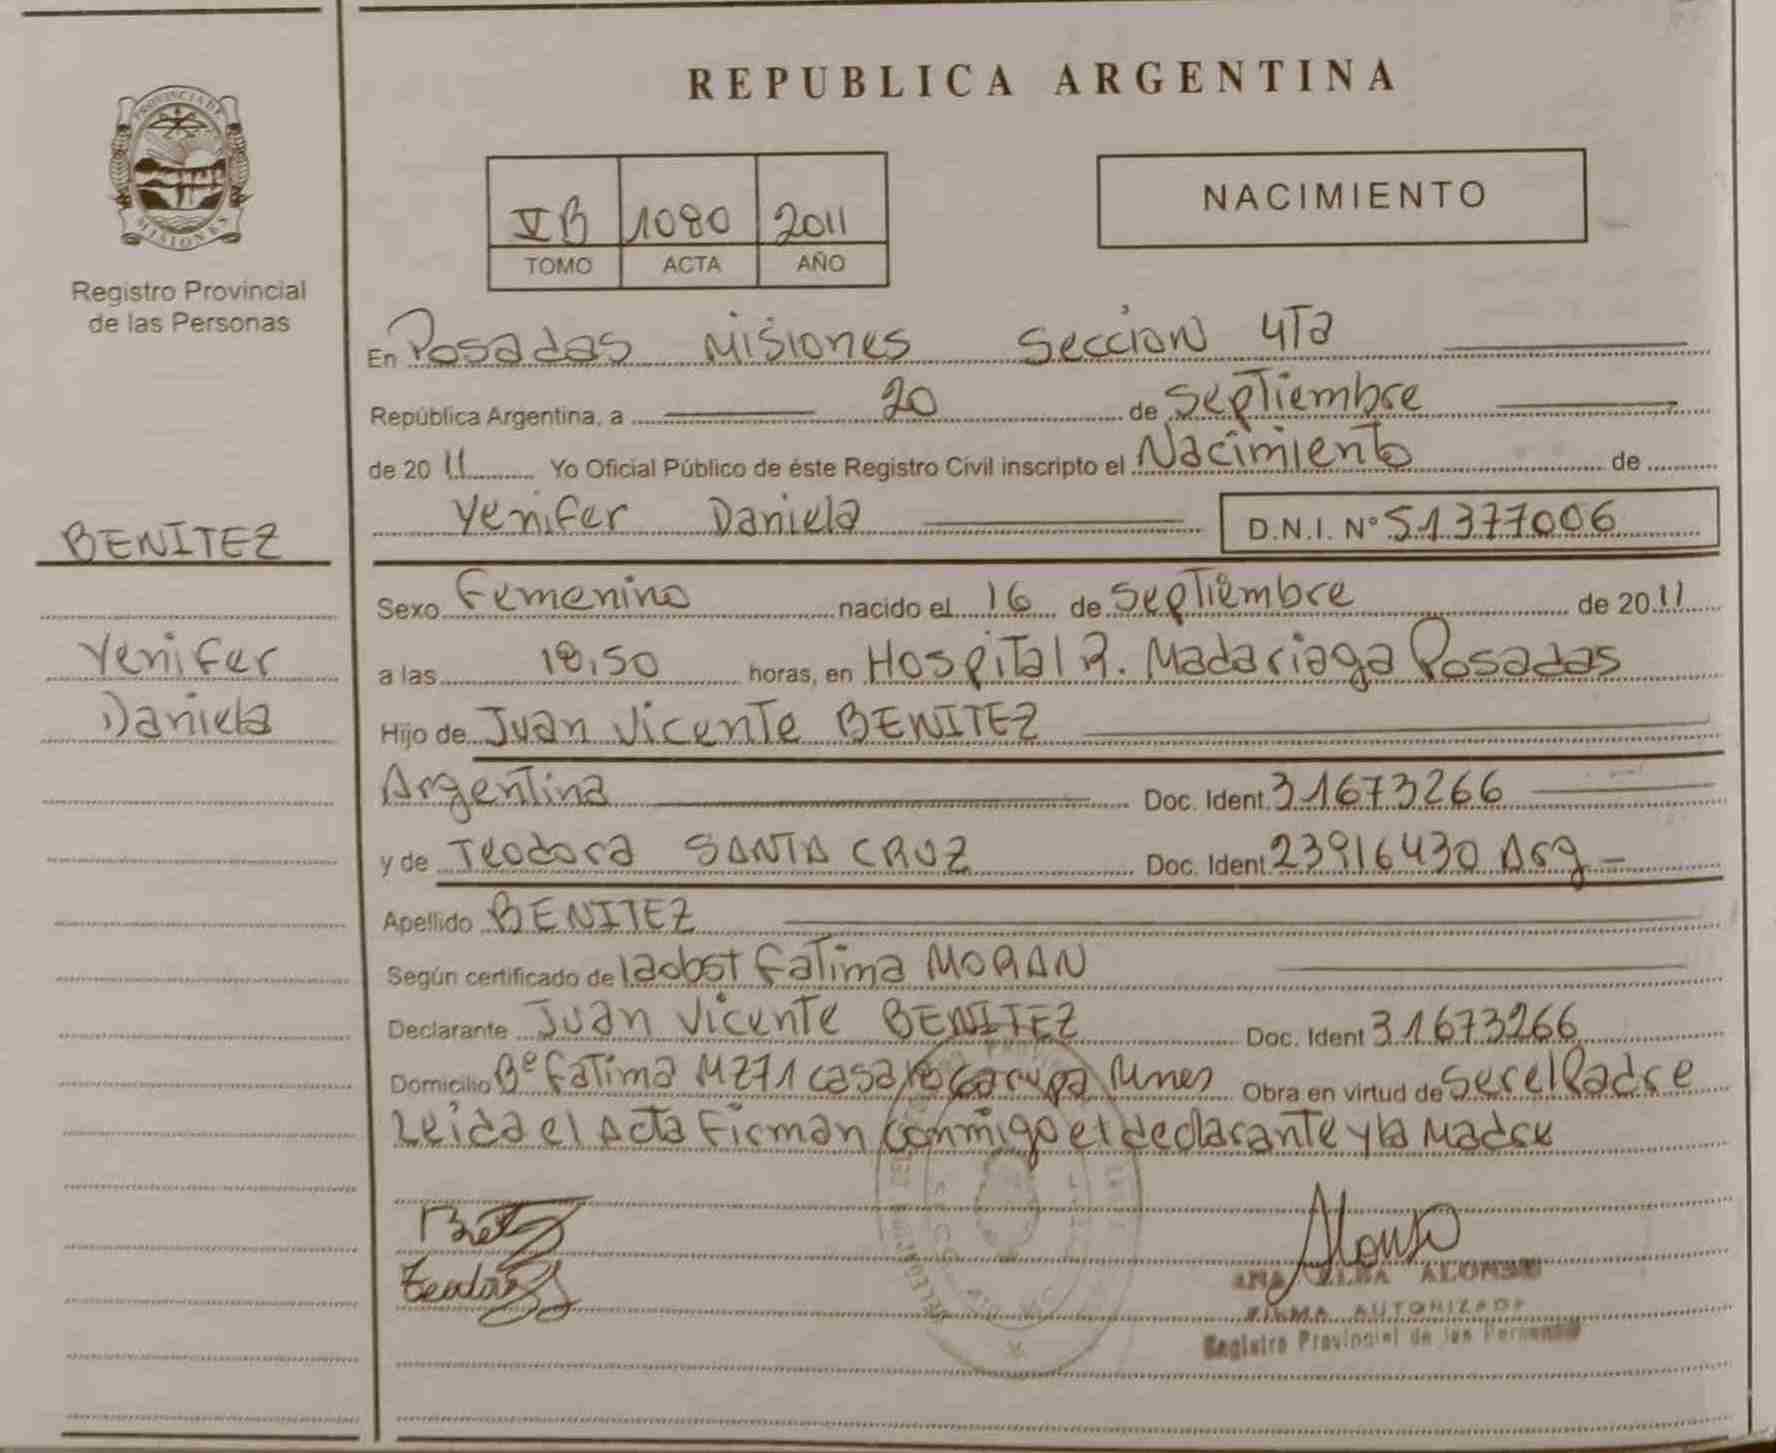 REPUBLICA ARGENTINA
PROVINCIA DE
MISIONES
Registro Provincial
de las Personas
VB 1080 2011
TOMO ACTA AÑO
NACIMIENTO
En Posadas Misiones Sección 4Ta
República Argentina, a 20 de Septiembre
de 2011 Yo Oficial Público de éste Registro Civil inscripto el Nacimiento de
Yenifer Daniela D.N.I. Nº 51377006
BENITEZ
Yenifer
Daniela
Sexo Femenino nacido el 16 de Septiembre de 2011
a las 18,50 horas, en Hospital R. Madariaga Posadas
Hijo de Juan Vicente BENITEZ
Argentina Doc. Ident. 31673266
y de Teodora SANTA CRUZ Doc. Ident. 23916430 Arg
Apellido BENITEZ
Según certificado de laobst Fatima MORAN
Declarante Juan Vicente BENITEZ Doc. Ident 31673266
Domicilio Bº Fatima MZ71 casa Garupa Mnes Obra en virtud de Ser el Padre
Leida el Acta Firman conmigo el declarante y la Madre
Alonso
ANA ALBA ALONSO
FIRMA AUTORIZADA
Registro Provincial de las Personas